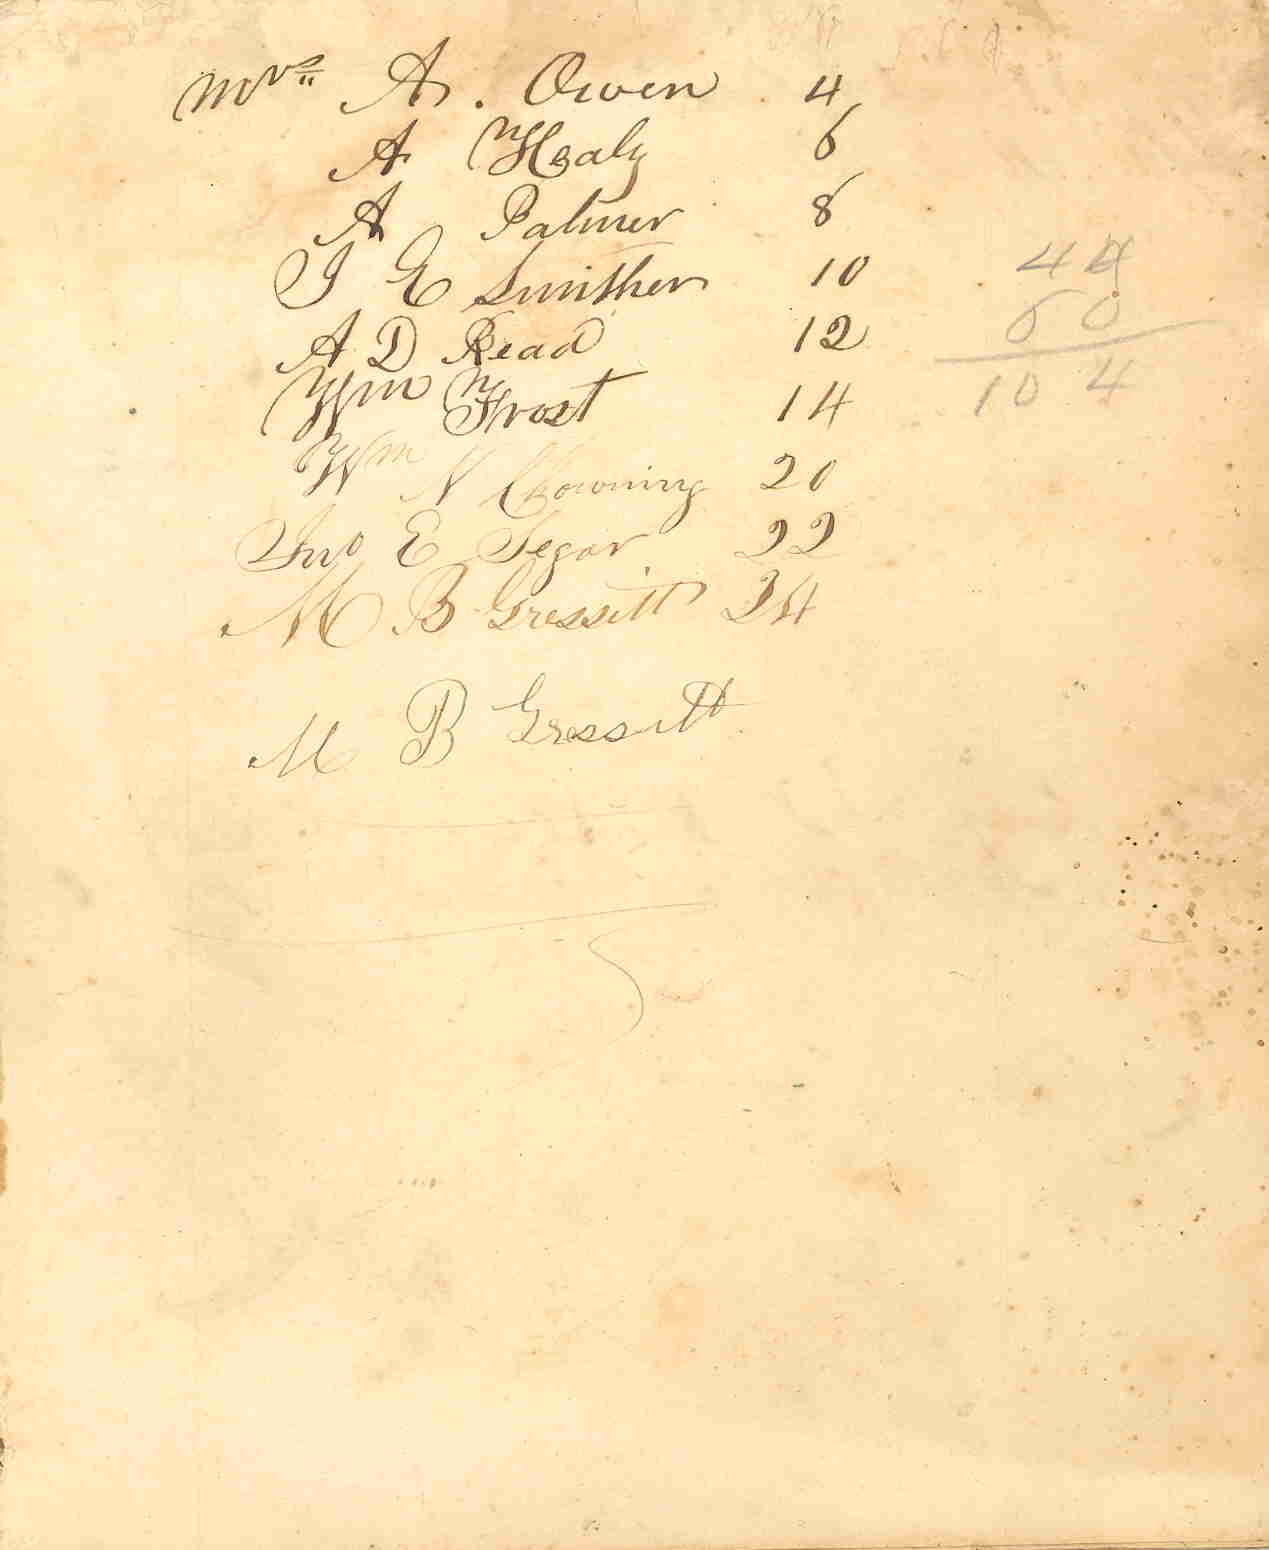 Mrs A. Owen 4
A Healy 6
A Palmer 8
J E Smither 10
A D Read 12
Wm Frost 14
Wm N Chowning 20
Jno E Segar 22
M B Gressitt 24
M B Gressitt
44
60
104